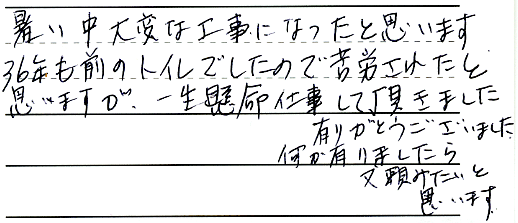 暑い中大変な工事になったと思います
36年も前のトイレでしたので苦労されたと
思いますが、一生懸命仕事して頂きました
有りがとうございました
何か有りましたら
又頼みたいと
思います